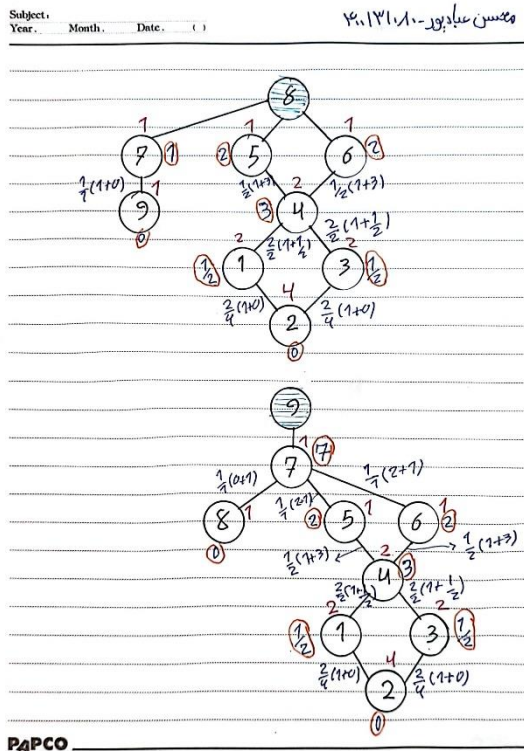 Subject:
Year. Month. Date. ( )
محسن عبادپور - ۴۰۰۱۳۱۰۸۰
8
1 1 1
7 1 2 5 6 2
1/1(1+0) 1 1/2(1+3) 2 1/2(1+3)
9 3 4
0 2 2/2(1+1/2) 2/2(1+1/2) 2
1/2 1 3 1/2
2/4(1+0) 4 2/4(1+0)
2
0
9
1 7
7
1/1(0+1) 1/1(2+1) 1/1(2+1)
8 1 2 5 1 6 1 2
0 1/2(1+3) 2 1/2(1+3)
4 3
2 2/2(1+1/2) 2/2(1+1/2) 2
1/2 1 3 1/2
2/4(1+0) 4 2/4(1+0)
2
0
PAPCO